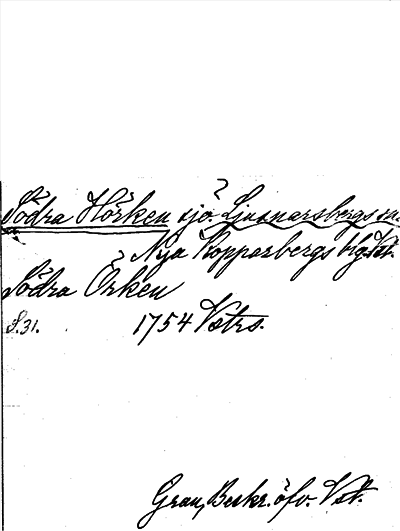 ?
Södra Hörken sjö. Ljusnarsbergs sn.
? Nya Kopparbergs blg. Vst.
Södra Örken
S. 31. 1754 Vstrs.
Grau, Beskr. öfv. Vst.